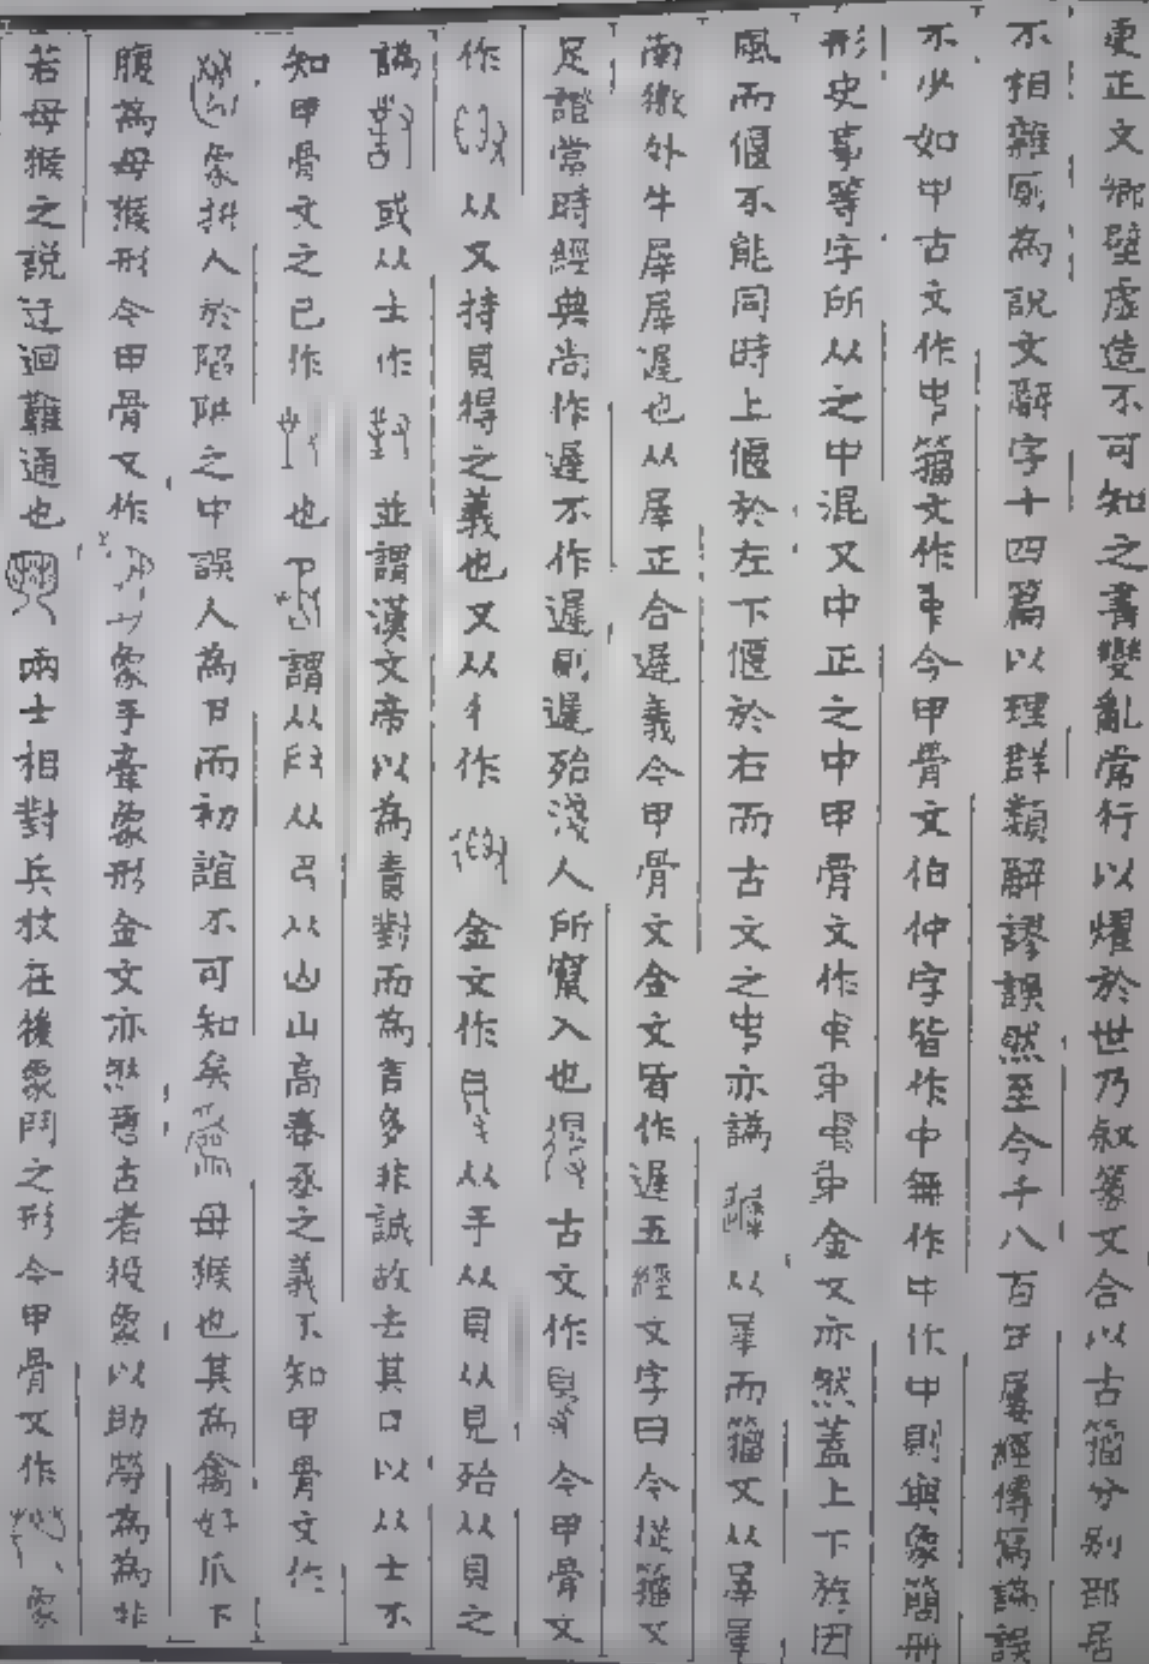 更正文鄉壁虛造不可知之書變亂常行以燿於世乃敘篆文合以古籀分別部居
不相雜廁為說文解字十四篇以理群類解謬誤然至今千八百年屢經傳寫譌誤
不少如中古文作籀文作今甲骨文伯仲字皆作中無作作中則與象簡冊
形史事等字所从之中混又中正之中甲骨文作金文亦然蓋上下斿因
風而偃不能同時上偃於左下偃於右而古文之亦譌以犀而籀文从犀犀
南徼外牛犀犀遲也从犀正合遲義今甲骨文金文皆作遲五經文字曰今從籀文
足證當時經典尚作遲不作遲則遲殆淺人所竄入也得古文作今甲骨文
作以又持貝得之義也又从彳作金文作从手从貝从見殆从貝之
譌對或从士作對並謂漢文帝以為責對而為言多非誠故去其口以从士不
知甲骨文之已作也丞謂从从从山山高奉丞之義不知甲骨文作
象拼人於陷阱之中誤人為而初誼不可知矣為母猴也其為禽好爪下
腹為母猴形今甲骨文作象手牽象形金文亦然古者役象以助勞為為非
若母猴之說迂迴難通也兩士相對兵杖在後象鬥之形今甲骨文作象